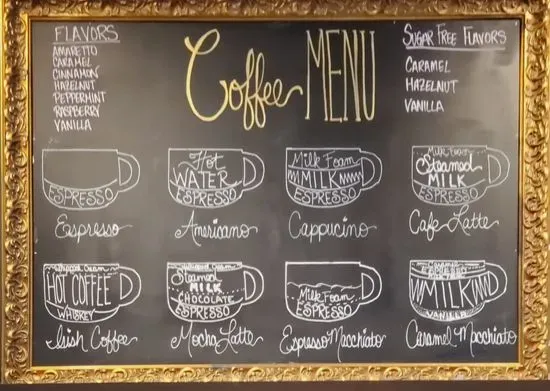 FLAVORS
AMARETTO
CARAMEL
CINNAMON
HAZELNUT
PEPPERMINT
RASPBERRY
VANILLA
Coffee MENU
SUGAR FREE FLAVORS
CARAMEL
HAZELNUT
VANILLA
ESPRESSO
Espresso
Hot
WATER
ESPRESSO
Americano
Milk Foam
MILK
ESPRESSO
Cappucino
Milk Foam
Steamed
MILK
ESPRESSO
Cafe Latte
Whipped Cream
HOT COFFEE
WHISKEY
Irish Coffee
Whipped Cream
Steamed
MILK
CHOCOLATE
ESPRESSO
Mocha Latte
Milk Foam
ESPRESSO
Espresso Macchiato
Caramel
ESPRESSO
MILK
VANILLA
Caramel Macchiato